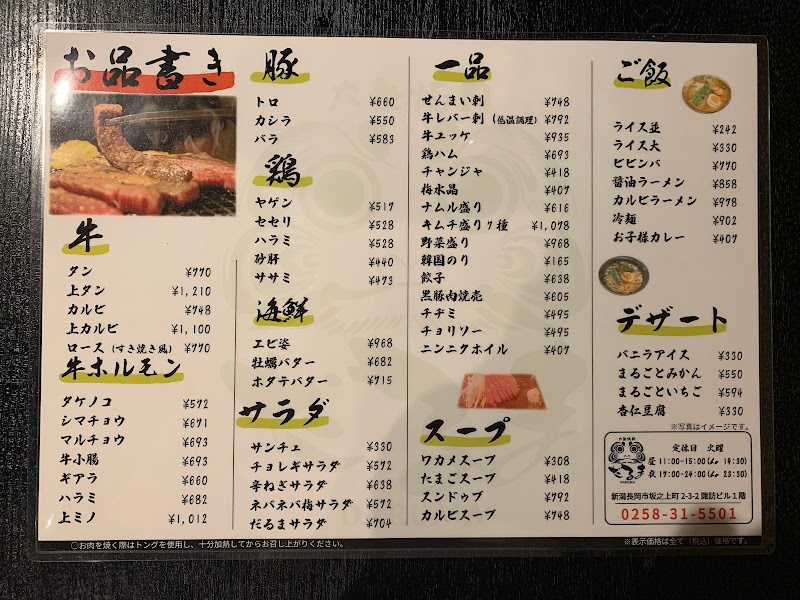 お品書き
牛
タン ¥770
上タン ¥1,210
カルビ ¥748
上カルビ ¥1,100
ロース(すき焼き風) ¥770
牛ホルモン
タケノコ ¥572
シマチョウ ¥671
マルチョウ ¥693
牛小腸 ¥693
ギアラ ¥660
ハラミ ¥682
上ミノ ¥1,012
豚
トロ ¥660
カシラ ¥550
バラ ¥583
鶏
ヤゲン ¥517
セセリ ¥528
ハラミ ¥528
砂肝 ¥440
ササミ ¥473
海鮮
エビ姿 ¥968
牡蠣バター ¥682
ホタテバター ¥715
サラダ
サンチェ ¥330
チョレギサラダ ¥572
辛ねぎサラダ ¥638
ネバネバ梅サラダ ¥572
だるまサラダ ¥704
一品
せんまい刺 ¥748
牛レバー刺(低温調理) ¥792
牛ユッケ ¥935
鶏ハム ¥693
チャンジャ ¥418
梅水晶 ¥407
ナムル盛り ¥616
キムチ盛り7種 ¥1,078
野菜盛り ¥968
韓国のり ¥165
餃子 ¥638
黒豚肉焼売 ¥605
チヂミ ¥495
チョリソー ¥495
ニンニクホイル ¥407
スープ
ワカメスープ ¥308
たまごスープ ¥418
スンドゥブ ¥792
カルビスープ ¥748
ご飯
ライス並 ¥242
ライス大 ¥330
ビビンバ ¥770
醤油ラーメン ¥858
カルビラーメン ¥978
冷麺 ¥902
お子様カレー ¥407
デザート
バニラアイス ¥330
まるごとみかん ¥550
まるごといちご ¥594
杏仁豆腐 ¥330
※写真はイメージです。
だるま
定休日 火曜
昼11:00-15:00(Lo 14:30)
夜17:00-24:00(Lo 23:30)
新潟長岡市坂之上町2-3-2 諏訪ビル1階
0258-31-5501
○お肉を焼く際はトングを使用し、十分加熱してからお召し上がりください。
※表示価格は全て(税込)価格です。